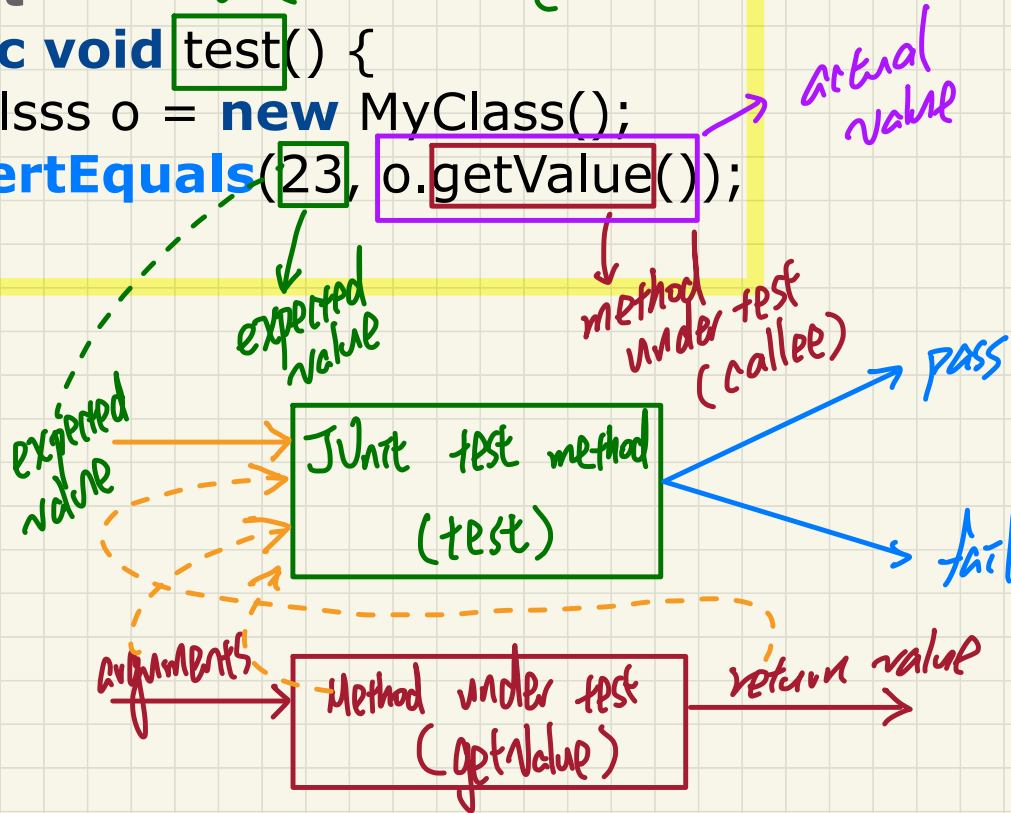 c void test() {
lsss o = new MyClass();
ertEquals(23, o.getValue());
actual
value
expected
value
method
under test
(callee)
expected
value
JUnit test method
(test)
pass
fail
arguments
Method under test
(getValue)
return value